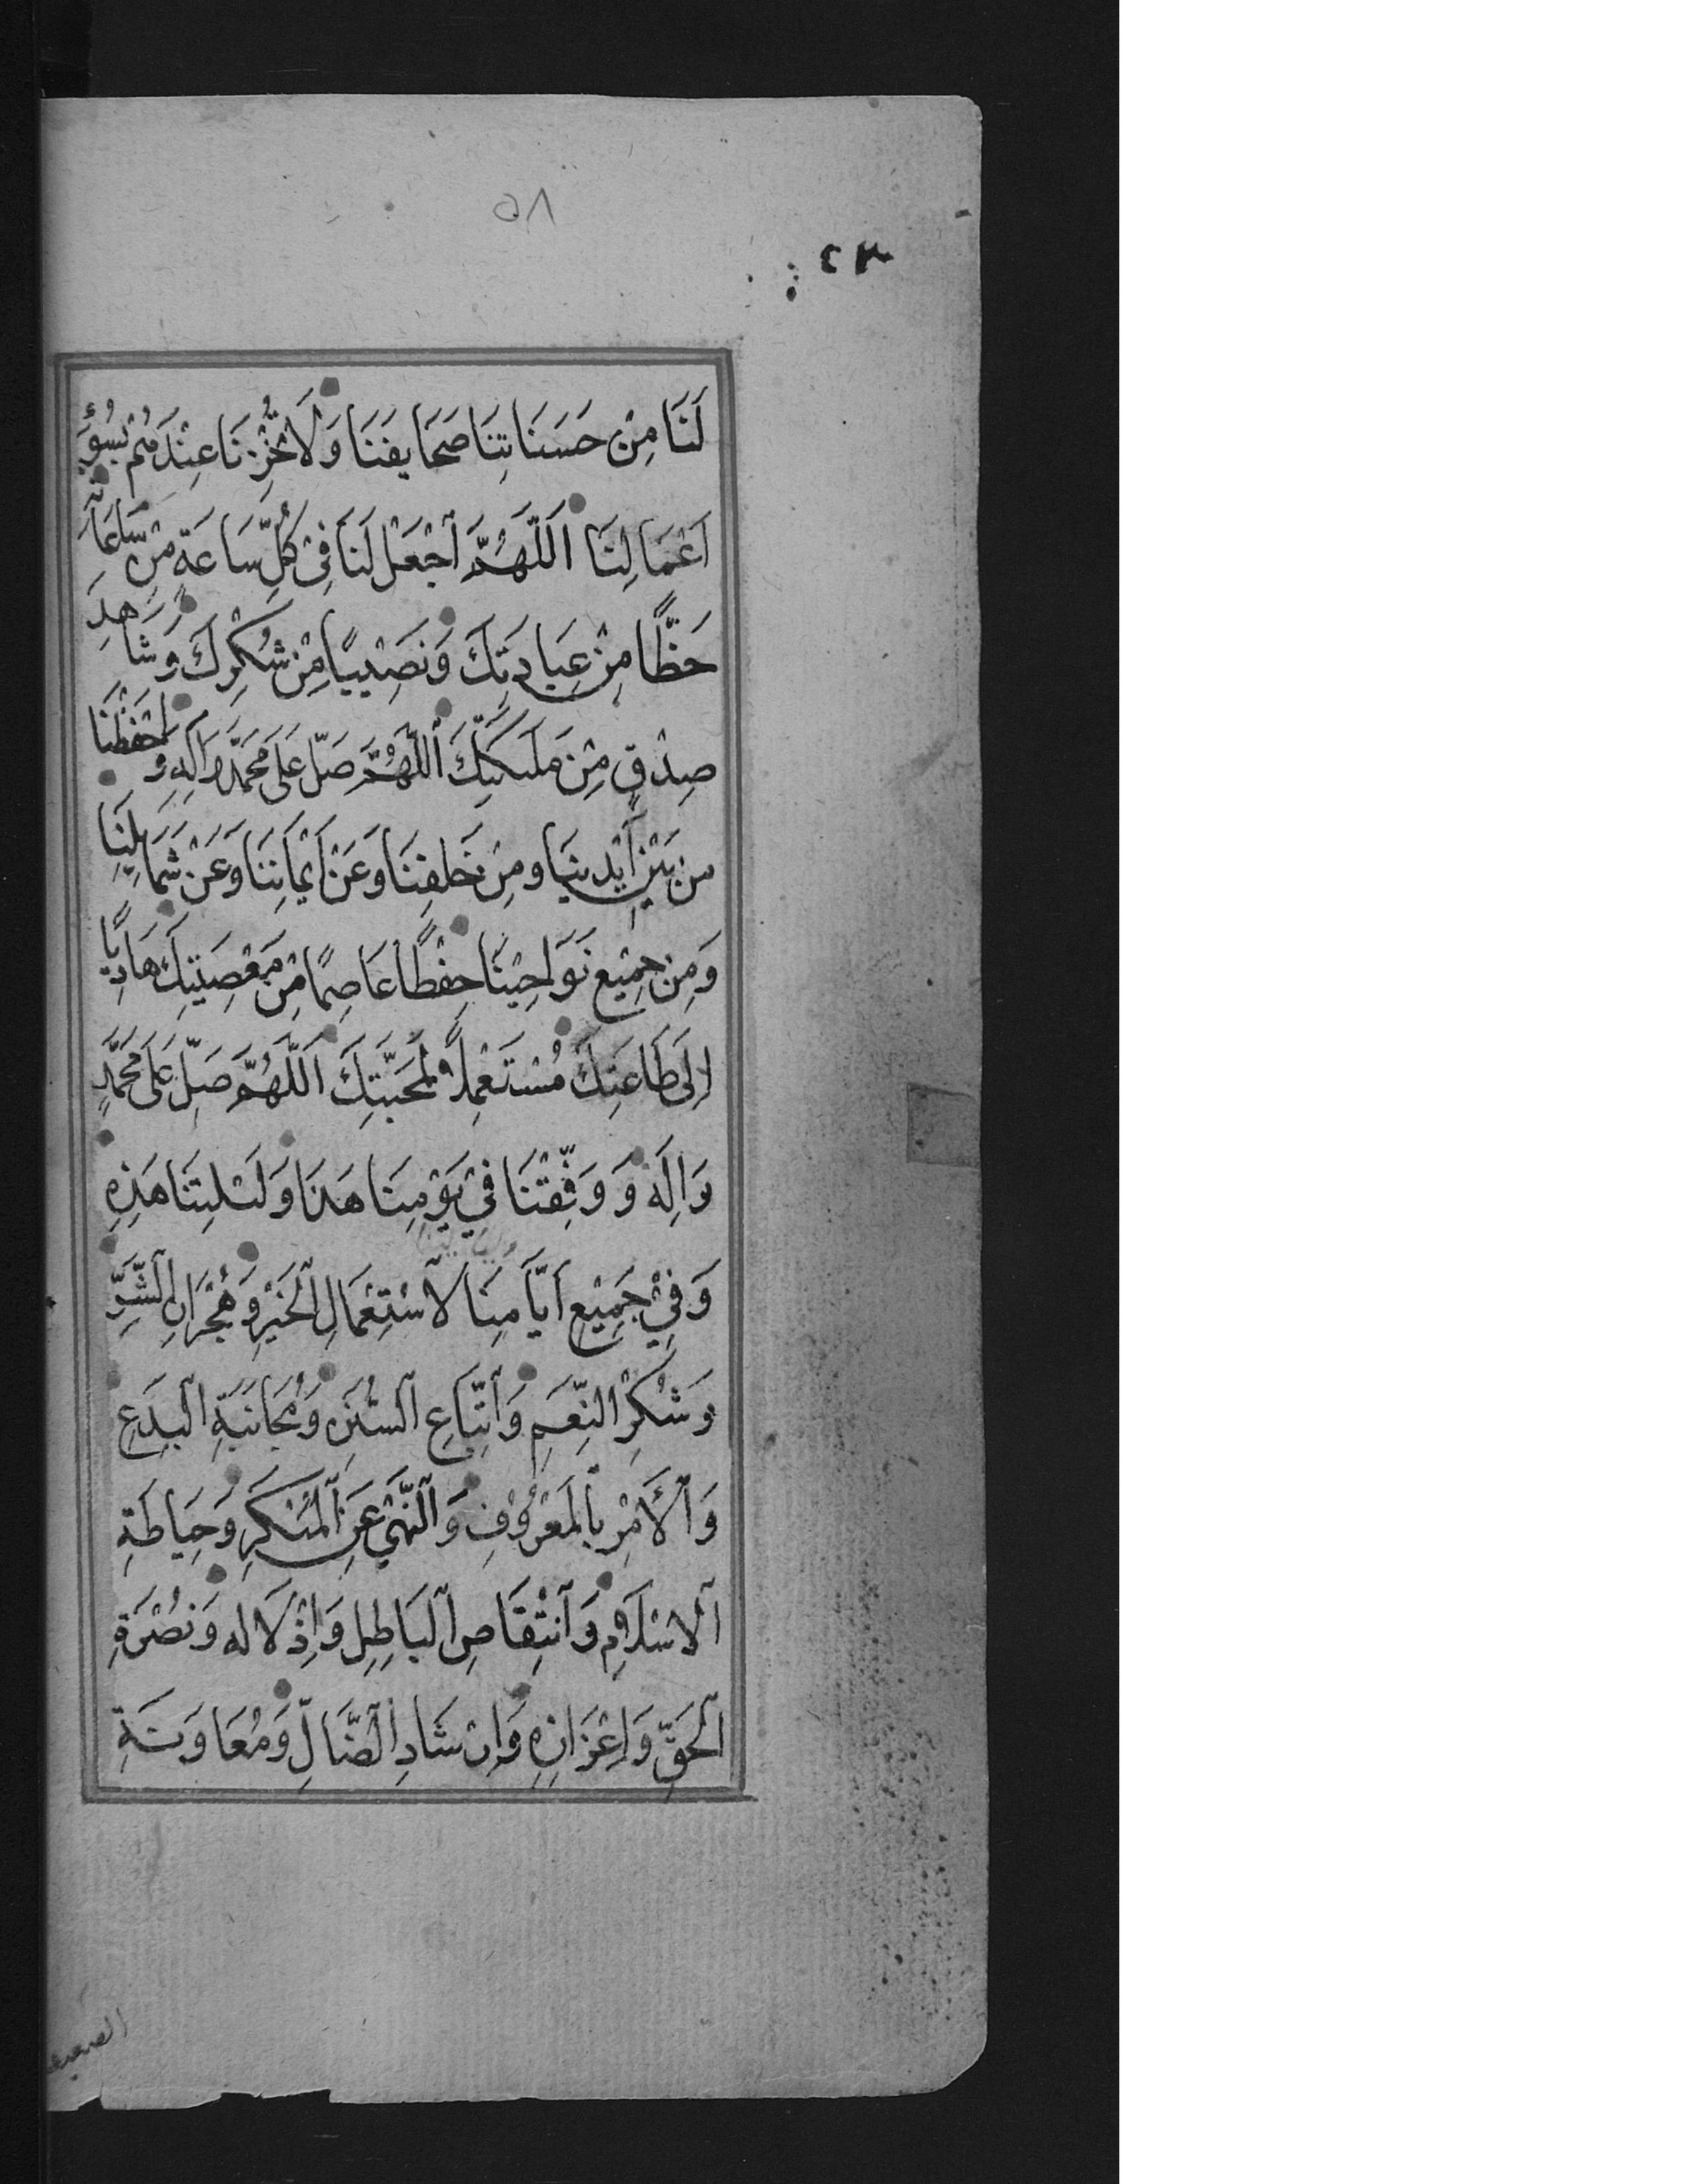 ٥٨
٢٣
لَنَا مِنْ حَسَنَاتِنَا صَحَايِفَنَا وَلَا تُخْزِنَا عِنْدَهُمْ بِسُوءِ
اَعْمَالِنَا اَللّٰهُمَّ اجْعَلْ لَنَا فِي كُلِّ سَاعَةٍ مِنْ سَاعَاتِهِ
حَظًّا مِنْ عِبَادَتِكَ وَنَصِيبًا مِنْ شُكْرِكَ وَشَاهِدَ
صِدْقٍ مِنْ مَلٰئِكَتِكَ اَللّٰهُمَّ صَلِّ عَلَى مُحَمَّدٍ وَاٰلِهِ وَاحْفَظْنَا
مِنْ بَيْنِ اَيْدِينَا وَمِنْ خَلْفِنَا وَعَنْ اَيْمَانِنَا وَعَنْ شَمَايِلِنَا
وَمِنْ جَمِيْعِ نَوَاحِيْنَا حِفْظًا عَاصِمًا مِنْ مَعْصِيَتِكَ هَادِيًا
اِلَى طَاعَتِكَ مُسْتَعْمِلًا لِمَحَبَّتِكَ اَللّٰهُمَّ صَلِّ عَلَى مُحَمَّدٍ
وَاٰلِهِ وَ وَفِّقْنَا فِيْ يَوْمِنَا هَذَا وَلَيْلَتِنَا هَذِهِ
وَفِيْ جَمِيْعِ اَيَّامِنَا لِاسْتِعْمَالِ الْخَيْرِ وَهِجْرَانِ الشَّرِّ
وَشُكْرِ النِّعَمِ وَاتِّبَاعِ السُّنَنِ وَمُجَانَبَةِ الْبِدَعِ
وَالْاَمْرِ بِالْمَعْرُوْفِ وَالنَّهْيِ عَنِ الْمُنْكَرِ وَحِيَاطَةِ
الْاِسْلَامِ وَانْتِقَاصِ الْبَاطِلِ وَاِذْلَالِهِ وَنُصْرَةِ
الْحَقِّ وَاِعْزَازِهِ وَاِرْشَادِ الضَّالِّ وَمُعَاوَنَةِ